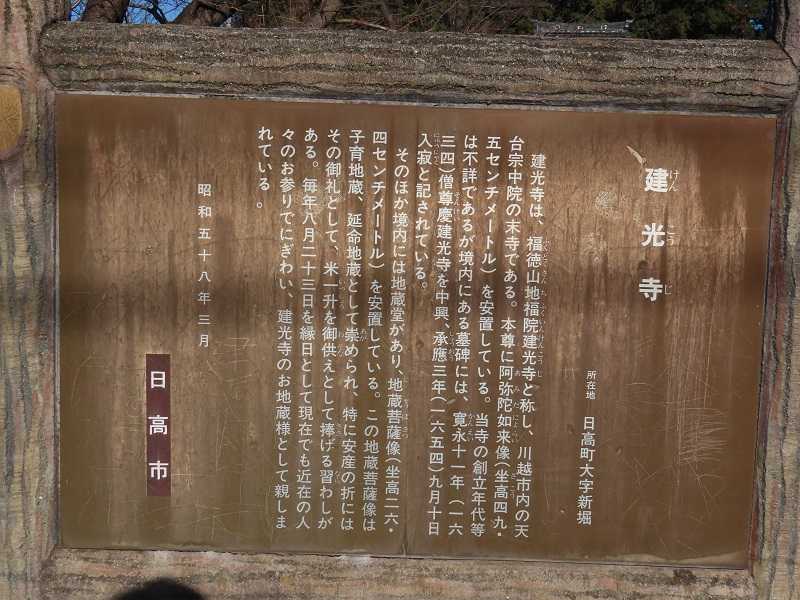 建光寺
けんこうじ
所在地 日高町大字新堀
建光寺は、福徳山地福院建光寺と称し、川越市内の天
台宗中院の末寺である。本尊に阿弥陀如来像(坐高四九・
五センチメートル)を安置している。当寺の創立年代等
は不詳であるが境内にある墓碑には、寛永十一年(一六
三四)僧尊慶建光寺を中興、承應三年(一六五四)九月十日
入寂と記されている。
そのほか境内には地蔵堂があり、地蔵菩薩像(坐高二六・
四センチメートル)を安置している。この地蔵菩薩像は
子育地蔵、延命地蔵として崇められ、特に安産の折には
その御礼として、米一升を御供えとして捧げる習わしが
ある。毎年八月二十三日を縁日として現在でも近在の人
々のお参りでにぎわい、建光寺のお地蔵様として親しま
れている。
昭和五十八年三月
日高市